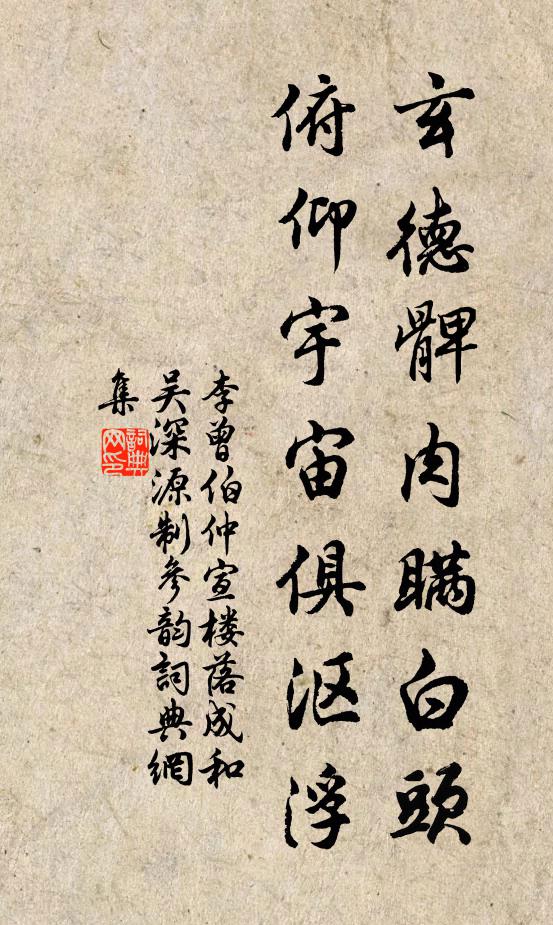 玄德髀肉瞞白頭
俯仰宇宙俱漚浮
李曾伯仲宣楼落成和
吴深源制參韵詞典網
集
詞典
网印